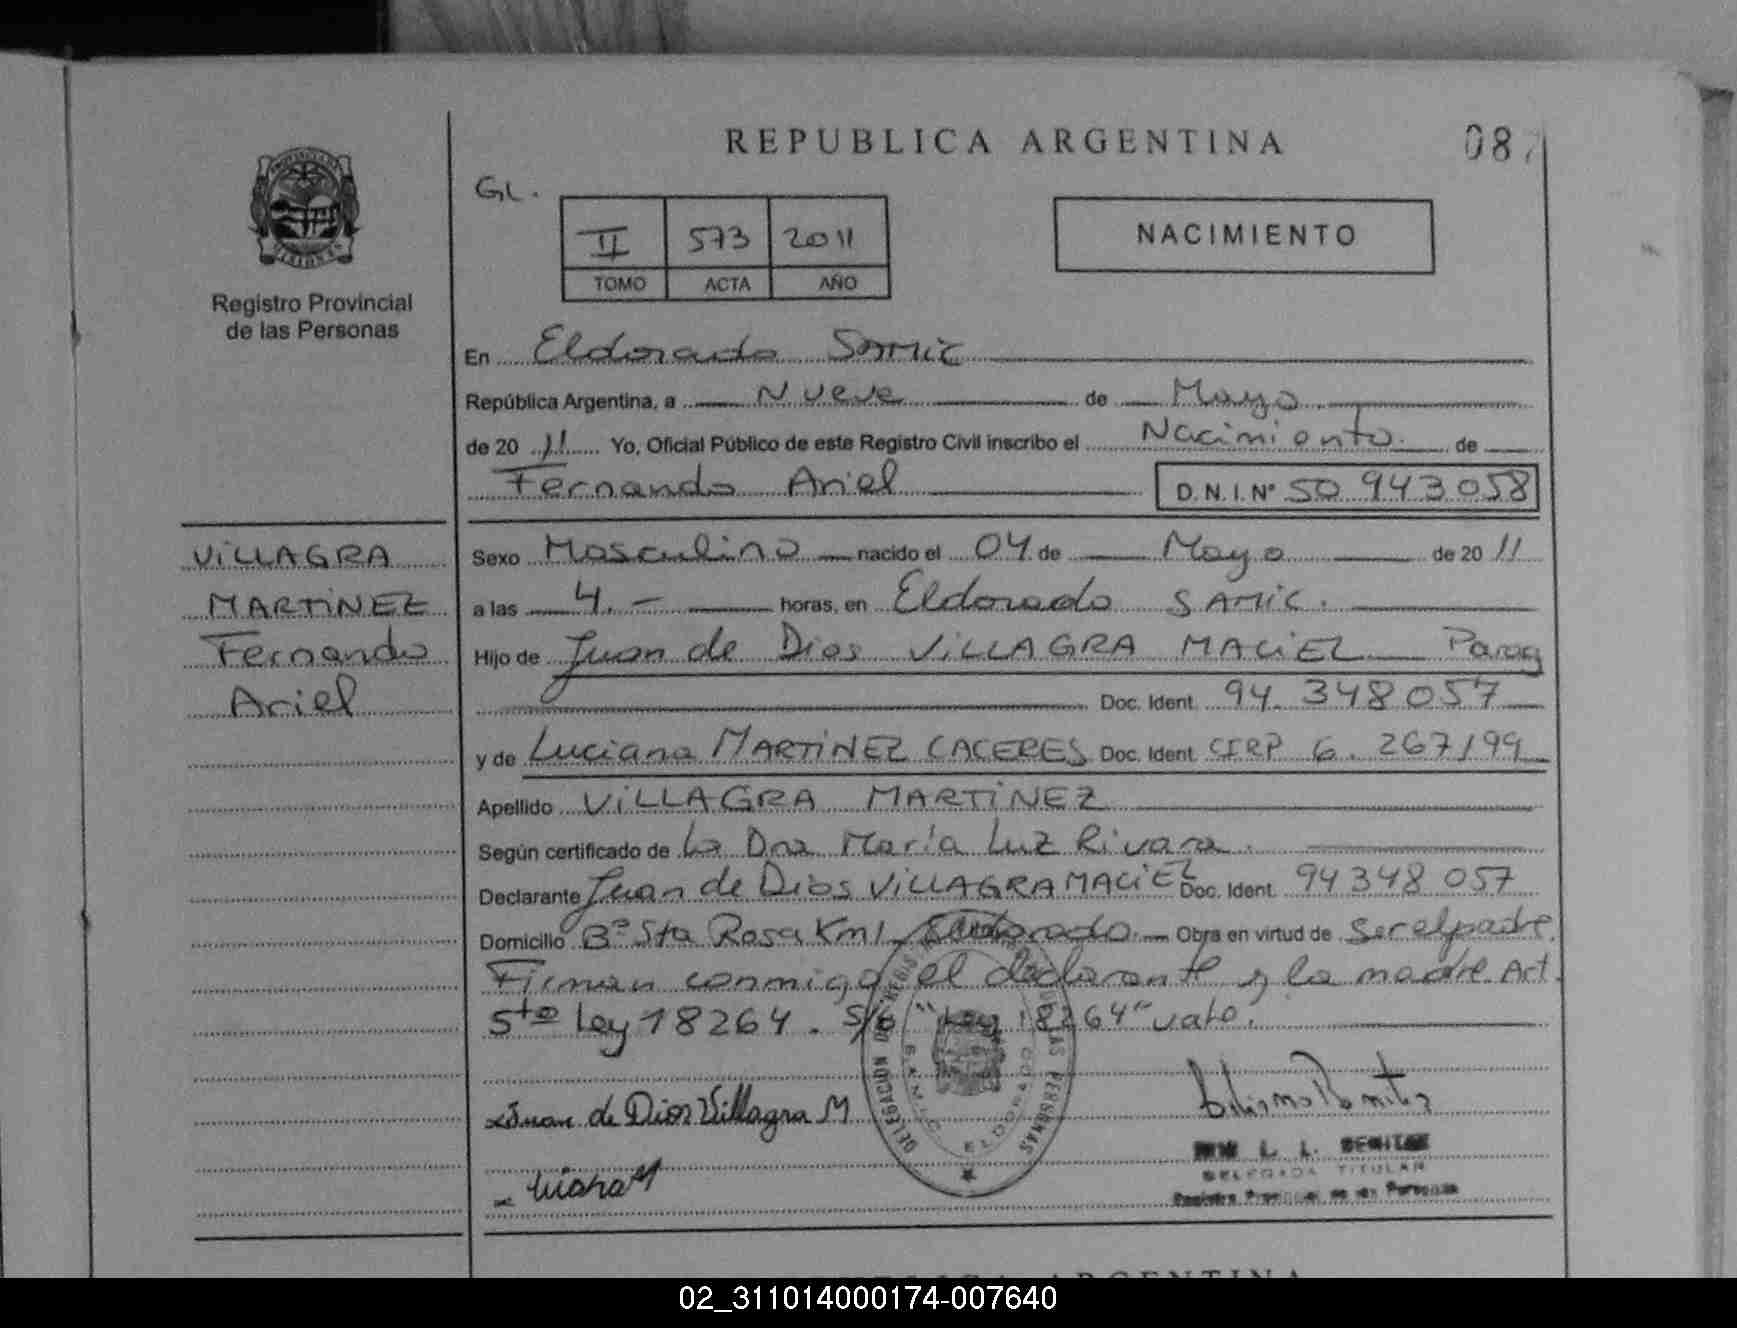 REPUBLICA ARGENTINA
08
GL.
II 573 2011
TOMO ACTA AÑO
NACIMIENTO
Registro Provincial
de las Personas
En Eldorado SAMIC
República Argentina, a Nueve de Mayo
de 20 11 Yo, Oficial Público de este Registro Civil inscribo el Nacimiento de
Fernando Ariel D.N.I.Nº 50 943058
VILLAGRA
MARTINEZ
Fernando
Ariel
Sexo Masculino nacido el 04 de Mayo de 20 11
a las 4.- horas, en Eldorado SAMIC.
Hijo de Juan de Dios VILLAGRA MACIEL Parag
Doc. Ident. 94.348057
y de Luciana MARTINEZ CACERES Doc. Ident. CIRP 6.267199
Apellido VILLAGRA MARTINEZ
Según certificado de La Dra María Luz Rivara.
Declarante Juan de Dios VILLAGRA MACIEL Doc. Ident. 94348 057
Domicilio Bº Sta Rosa Km1 Eldorado Obra en virtud de Ser el padre.
Firman conmigo el declarante y la madre Art.
5to Ley 18264. S/E "Ley 18264" vale.
Juan de Dios Villagra M
DELEGACION DEL REGIS LAS PERSONAS
ELDORADO
L. L. BENITEZ
DELEGADA TITULAR
Registro Provincial de las Personas
ARGENTINA
02_311014000174-007640